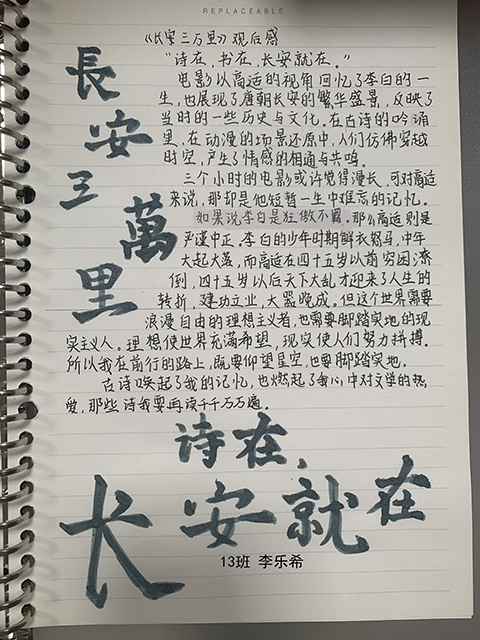 REPLACEABLE
《长安三万里》观后感
“诗在，书在，长安就在。”
电影以高适的视角回忆了李白的一
生，也展现了唐朝长安的繁华盛景，反映了
当时的一些历史与文化。在古诗的吟诵
里，在动漫的场景还原中，人们仿佛穿越
时空，产生了情感的相通与共鸣。
三个小时的电影或许觉得漫长，可对高适
来说，那却是他短暂一生中难忘的记忆。
如果说李白是狂傲不羁，那么高适则是
严谨中正，李白的少年时期鲜衣怒马，中年
大起大落，而高适在四十五岁以前穷困潦
倒，四十五岁以后天下大乱才迎来了人生的
转折，建功立业，大器晚成。但这个世界需要
浪漫自由的理想主义者，也需要脚踏实地的现
实主义人。理想使世界充满希望，现实使人们努力拼搏。
所以我在前行的路上，既要仰望星空，也要脚踏实地。
古诗唤起了我的记忆，也燃起了我心中对文学的热
爱，那些诗我要再读千千万万遍。
長安三萬里
诗在，
长安就在
13班 李乐希